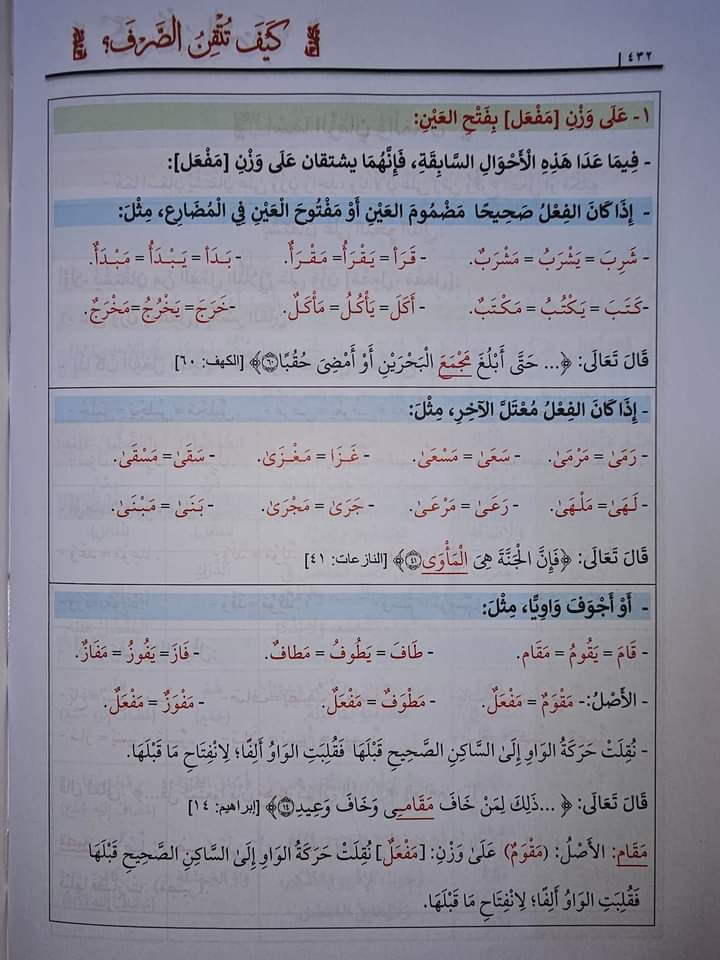 كَيْفَ تُتْقِنُ الصَّرْفَ؟
٤٣٢
١- عَلَى وَزْنِ [مَفْعَل] بِفَتْحِ العَيْنِ:
- فِيمَا عَدَا هَذِهِ الْأَحْوَالِ السَّابِقَةِ، فَإِنَّهُمَا يشتقان عَلَى وَزْنِ [مَفْعَل]:
- إِذَا كَانَ الفِعْلُ صَحِيحًا مَضْمُومَ العَيْنِ أَوْ مَفْتُوحَ الْعَيْنِ فِي الْمُضَارِعِ، مِثْلَ:
شَرِبَ = يَشْرَبُ = مَشْرَبٌ. - قَرَأَ = يَقْرَأُ = مَقْرَأٌ. - بَدَأَ = يَبْدَأُ = مَبْدَأٌ.
-كَتَبَ = يَكْتُبُ = مَكْتَبٌ. - أَكَلَ = يَأْكُلُ = مَأْكَلٌ. -خَرَجَ = يَخْرُجُ= مَخْرَجٌ.
قَالَ تَعَالَى: ﴿... حَتَّى أَبْلُغَ مَجْمَعَ الْبَحْرَيْنِ أَوْ أَمْضِيَ حُقُبًا ۝٦٠﴾ [الكهف: ٦٠]
- إِذَا كَانَ الفِعْلُ مُعْتَلَّ الآخِرِ، مِثْلَ:
رَمَىٰ = مَرْمَىٰ. - سَعَىٰ = مَسْعَىٰ. - غَزَا = مَغْزَىٰ. - سَقَىٰ = مَسْقَىٰ.
لَهَىٰ = مَلْهَىٰ. - رَعَىٰ = مَرْعَىٰ. - جَرَىٰ = مَجْرَىٰ. - بَنَىٰ = مَبْنَىٰ.
قَالَ تَعَالَى: ﴿فَإِنَّ الْجَنَّةَ هِىَ الْمَأْوَى ۝٤١﴾ [النازعات: ٤١]
- أَوْ أَجْوَفَ وَاوِيًّا، مِثْلَ:
- قَامَ = يَقُومُ = مَقَام. - طَافَ = يَطُوفُ = مَطافٌ. - فَازَ = يَفُوزُ = مَفَازٌ.
- الأَصْلُ:- مَقْوَمٌ = مَفْعَلٌ. - مَطْوَفٌ = مَفْعَلٌ. - مَفْوَزٌ = مَفْعَلٌ.
- نُقِلَتْ حَرَكَةُ الوَاوِ إِلَىٰ السَّاكِنِ الصَّحِيحِ قَبْلَهَا فَقُلِبَتِ الوَاوُ أَلِفًا؛ لِانْفِتَاحِ مَا قَبْلَهَا.
قَالَ تَعَالَى: ﴿ ...ذَلِكَ لِمَنْ خَافَ مَقَامِى وَخَافَ وَعِيدِ ۝١٤﴾ [إبراهيم: ١٤]
مَقَام: الأَصْلُ: (مَقْوَمٌ) عَلَىٰ وَزْنِ: [مَفْعَلٌ] نُقِلَتْ حَرَكَةُ الوَاوِ إِلَىٰ السَّاكِنِ الصَّحِيحِ قَبْلَهَا
فَقُلِبَتِ الوَاوُ أَلِفًا؛ لِانْفِتَاحِ مَا قَبْلَهَا.